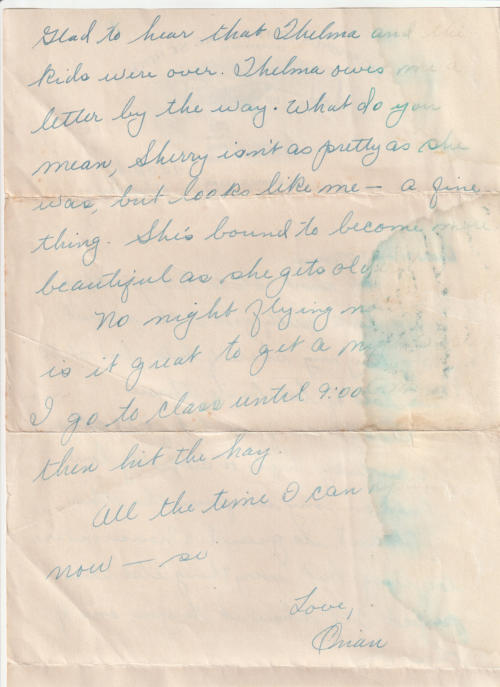 Glad to hear that Thelma and the
kids were over. Thelma owes me a
letter by the way. What do you
mean, Sherry isn't as pretty as she
was, but looks like me — a fine
thing. She's bound to become more
beautiful as she gets older
No night flying
is it great to get a
I go to class until 9:00
then hit the hay.
All the time I can
now — so
Love,